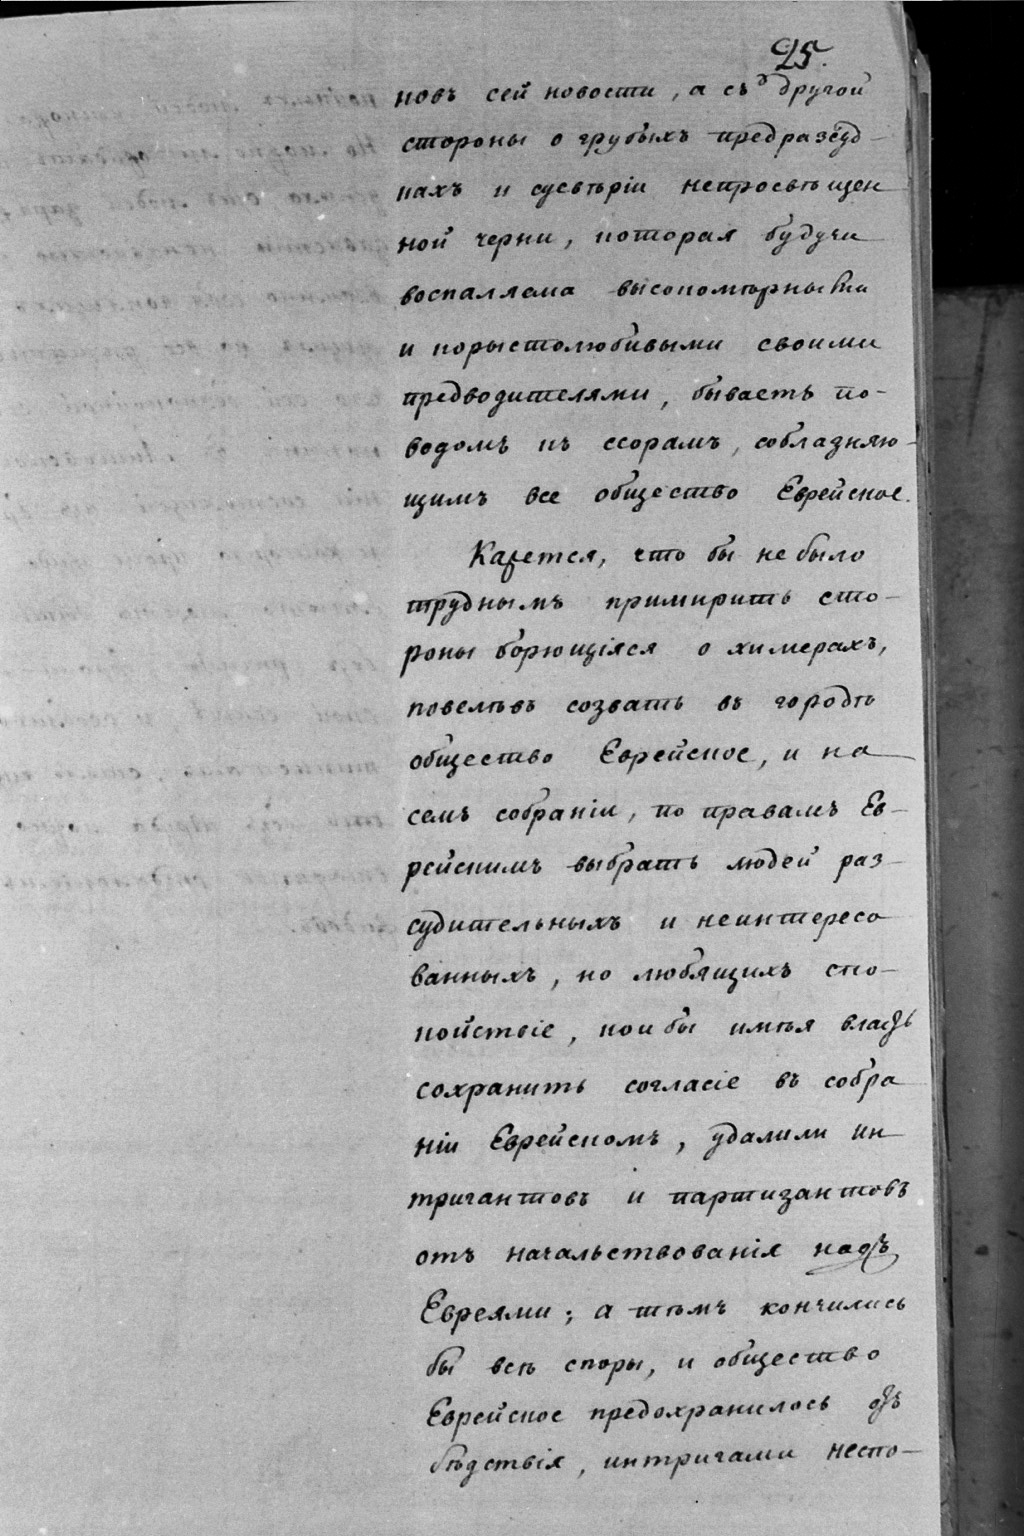 25.
новъ сей новости, а съ другой
стороны о грубыхъ предразсуд-
кахъ и суевѣріи непросвѣщен
ной черни, которая будучи
воспаляема высокомѣрными
и корыстолюбивыми своими
предводителями, бываетъ по-
водомъ къ ссорамъ, соблазняю-
щимъ все общество Еврейское.
Кажется, что бы не было
труднымъ примирить сто-
роны борющіяся о химерахъ,
повелѣвъ созвать въ городѣ
общество Еврейское, и на
семъ собраніи, по правамъ Ев-
рейскимъ выбрать людей раз-
судительныхъ и неинтересо
ванныхъ, но любящихъ спо-
койствіе, кои бы имѣя власть
сохранить согласіе въ собра
ніи Еврейскомъ, удалили ин
тригантовъ и партизантовъ
отъ начальствованія надъ
Евреями; а тѣмъ кончились
бы всѣ споры, и общество
Еврейское предохранилось отъ
бѣдствія, интригами неспо-